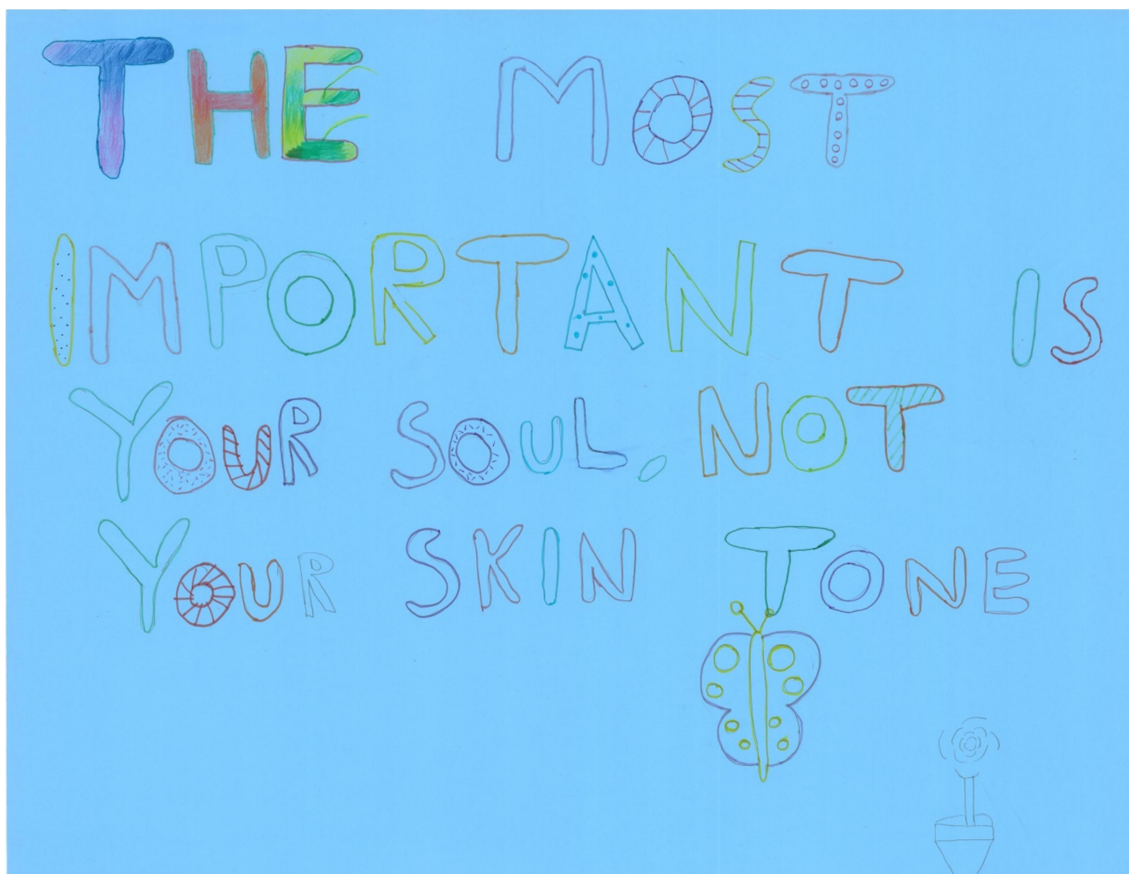 THE MOST
IMPORTANT IS
YOUR SOUL, NOT
YOUR SKIN TONE